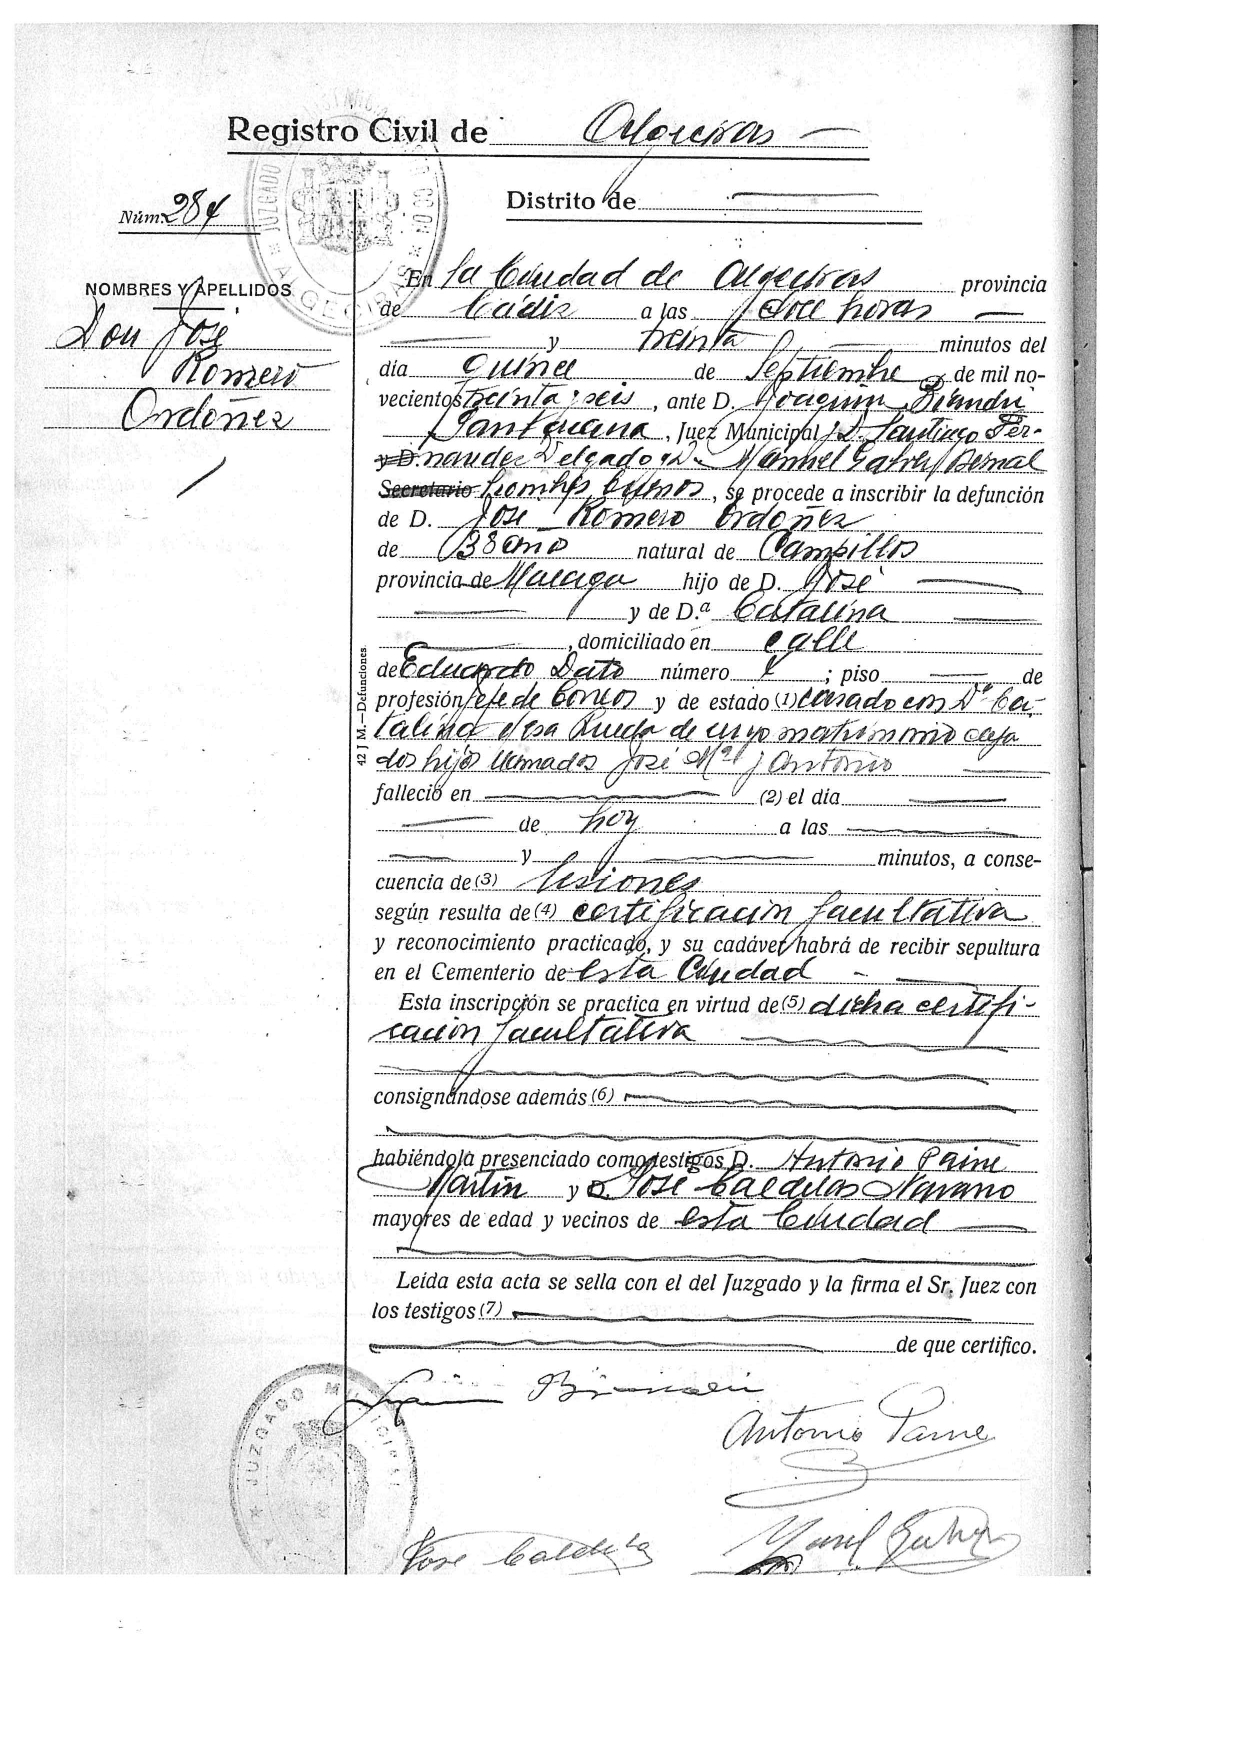 Registro Civil de Algeciras
Distrito de
Núm. 284
NOMBRES Y APELLIDOS
Don José
Romero
Ordóñez
En la Ciudad de Algeciras provincia
de Cádiz a las doce horas
y treinta minutos del
día quince de Septiembre de mil no-
vecientos treinta y seis, ante D. Joaquin
Santana, Juez Municipal, D. Santiago Fer-
y D. nandez Delgado y D. Manuel Bernal
Secretario hombres buenos, se procede a inscribir la defunción
de D. José Romero Ordoñez
de 38 años natural de Campillos
provincia de Malaga hijo de D. José
y de D.ª Catalina
, domiciliado en calle
de Eduardo Dato número 4; piso de
profesión Jefe de Correos y de estado (1) casado con Dª Ca-
talina Rueda de cuyo matrimonio deja
dos hijos llamados José Mª y Antonio
falleció en (2) el día
de hoy a las
y minutos, a conse-
cuencia de (3) lesiones
según resulta de (4) certificación facultativa
y reconocimiento practicado, y su cadáver habrá de recibir sepultura
en el Cementerio de esta Ciudad
Esta inscripción se practica en virtud de (5) dicha certifi-
cación facultativa
consignándose además (6)
habiéndola presenciado como testigos D. Antonio Paine
Martín y D. José Calderas Navarro
mayores de edad y vecinos de esta Ciudad
Leída esta acta se sella con el del Juzgado y la firma el Sr. Juez con
los testigos (7)
de que certifico.
42 J M.—Defunciones.
JUZGADO
ALGECIRAS
JUZGADO MUNICIPAL
Antonio Paine
José